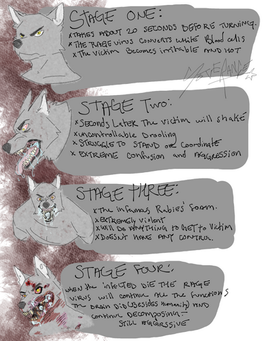 STAGE ONE:
*TAKES ABOUT 20 SECONDS BEFORE TURNING.
*THE RAGE VIRUS CONVERTS WHITE Blood cells
*The Victim BECOMES IRRITABLE AND HOT
STAGE TWO:
*SECONDS LATER THE VICTIM will SHAKE
*uncontrollable Drooling
*STRUGGLE TO STAND or COORDINATE
*EXTREME CONFUSION and AGGRESSION
STAGE THREE:
*The infamous Rabies' foam.
*EXTREMELY violent
*Will DO ANYTHING TO GET TO Victim
*DOESN'T HAVE ANY CONTROL.
STAGE FOUR:
WHEN THE INFECTED DIE THE RAGE
VIRUS will CONTINUE ALL THE FUNCTIONS
THE BRAIN DID (BESIDES HUMANITY) AND
CONTINUE DECOMPOSING-
STILL AGGRESSIVE